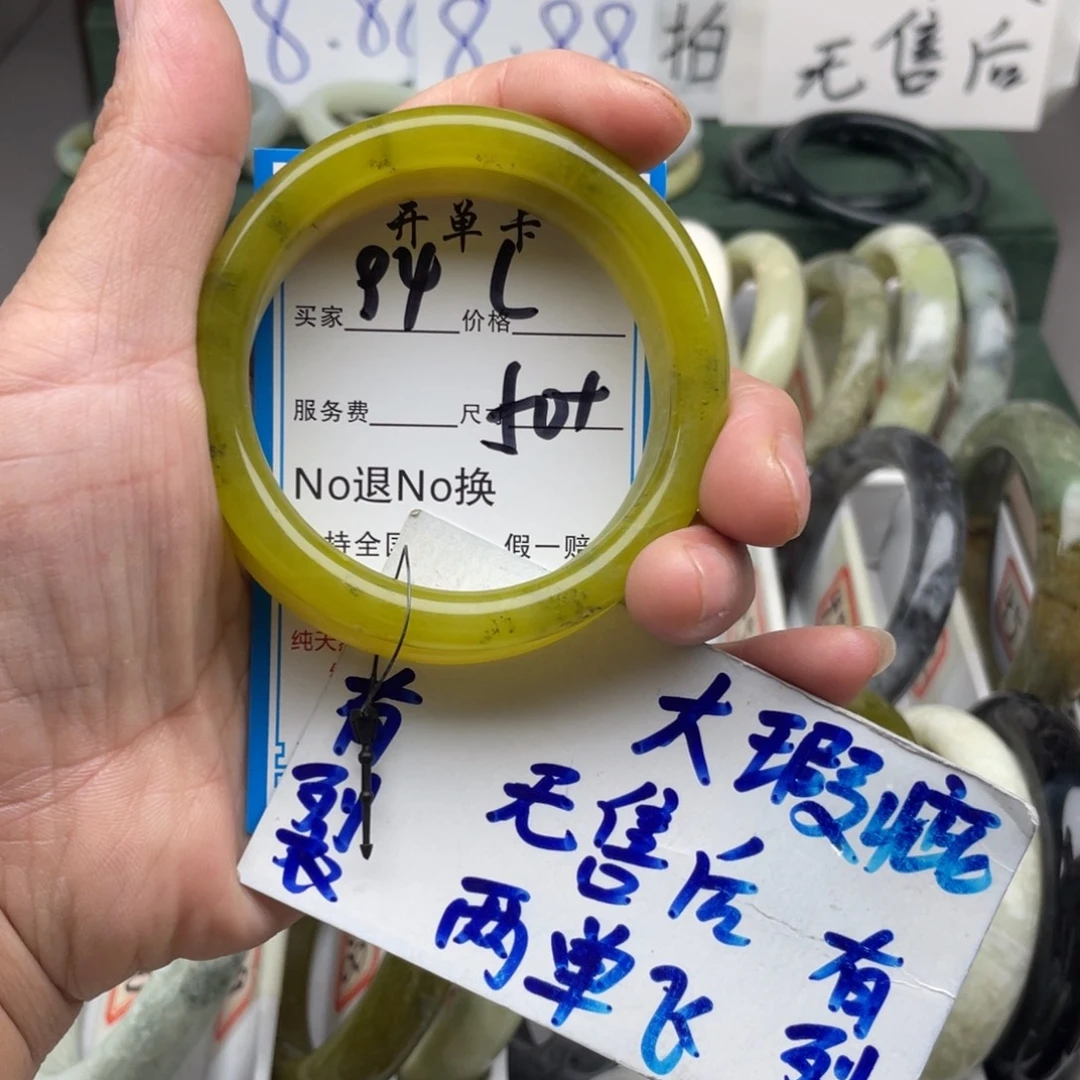 8.8
8.88
拍
无售后
开单卡
94 L
买家 价格
服务费 尺寸
No退No换
持全国 假一赔
纯天
有裂
大瑕疵
无售后
两单飞
有裂